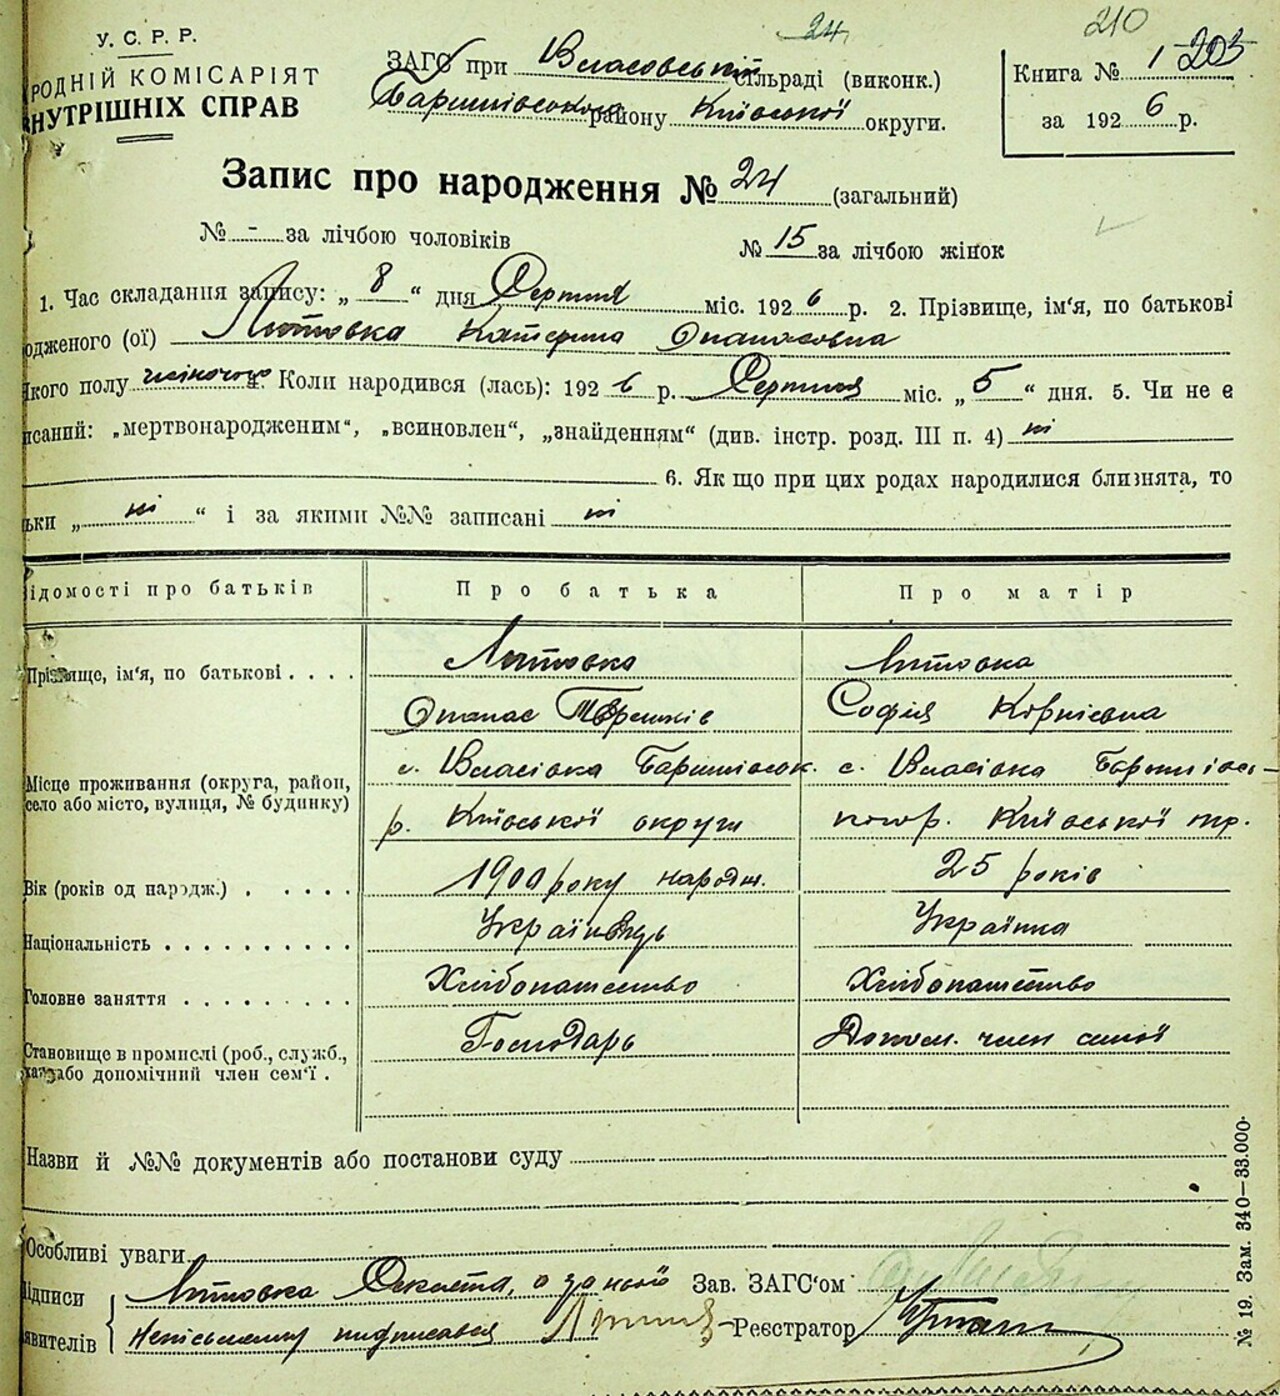 24
210
У. С. Р. Р.
РОДНІЙ КОМІСАРІЯТ
НУТРІШНІХ СПРАВ
ЗАГС при Власовській сільраді (виконк.)
Баришівського району Київської округи.
Книга № 1 203
за 1926 р.
Запис про народження № 24 (загальний)
№ - за лічбою чоловіків
№ 15 за лічбою жінок
1. Час складання запису: „ 8 “ дня Серпня міс. 1926 р. 2. Прізвище, ім'я, по батькові
одженого (ої) Литовка Катерина Опанасовна
якого полу жіночого 4. Коли народився (лась): 1926 р. Серпня міс. „ 5 “ дня. 5. Чи не є
исаний: „мертвонародженим“, „всиновлен“, „знайденням“ (див. інстр. розд. III п. 4) ні
6. Як що при цих родах народилися близнята, то
ьки „ ні “ і за якими №№ записані ні
ідомості про батьків
Про батька
Про матір
Прізвище, ім'я, по батькові . . . .
Литовка
Литовка
Опанас
Софія Корнієвна
Місце проживання (округа, район, село або місто, вулиця, № будинку)
с. Власівка Баришівськ.
р. Київської округи
с. Власівка Баришівсь-
кого р. Київської окр.
Вік (років од народж.) . . . . .
1900 року народж.
25 років
Національність . . . . . . . . . .
Українець
Українка
Головне заняття . . . . . . . . .
Хлібопашество
Хлібопашество
Становище в промислі (роб., служб.,
хаз. або допомічний член сем'ї .
Господарь
Допом. член сем'ї
Назви й №№ документів або постанови суду
Особливі уваги
ідписи
явителів
Литовка а за ньої
неписьменну підписався
Зав. ЗАГС'ом
Реєстратор
№ 19. Зам. 340—33.000.